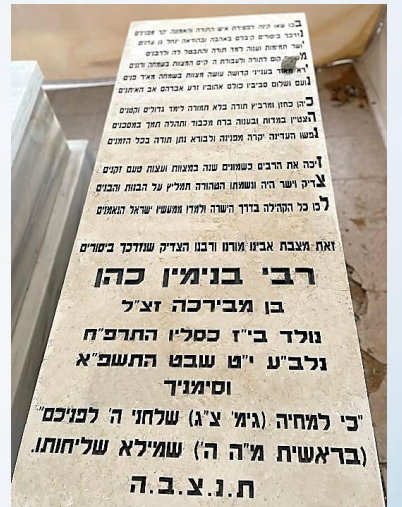 בכו שאו קינה לפטירת איש התורה והאמונה יקר מפנינים
נזדכך ביסורים קיבלם באהבה ובהודאה ינחל גן עדנים
ישר תמימות וענוה למד תורה והתבטל לה ולרבנים
קום לתורה ולעבודת ה' קיים המצוות בשמחה ורננים
ירא מאוד בענייני קדושה עושה מצוות בשמחה מאיר פנים
נועם ושלום סביביו כולם אהוביו זרע אברהם אב האיתנים
כיהן כחזן ומרביץ תורה בלא תמורה לימד גדולים וקטנים
הצטיין במדות ובענוה ברח מכבוד ותהלה תמך במסכנים
נפשו העדינה יקרה מפנינה ולבורא נתן תודה בכל הזמנים
זיכה את הרבים כשמונים שנה במצוות ועצות טעם זקנים
צדיק וישר היה ונשמתו הטהורה תמליץ על הבנות והבנים
לכו כל הקהילה בדרך הישרה ולמדו ממעשיו ישראל הנאמנים
זאת מצבת אבינו מורנו ורבנו הצדיק שנזדכך ביסורים
רבי בנימין כהן
בן מבירכה זצ"ל
נולד בי"ז כסליו התרפ"ח
נלב"ע י"ט שבט התשפ"א
וסימניך
"כי למחיה (גימ' צ"ג) שלחני ה' לפניכם"
(בראשית מ"ה ה') שמילא שליחותו.
ת.נ.צ.ב.ה